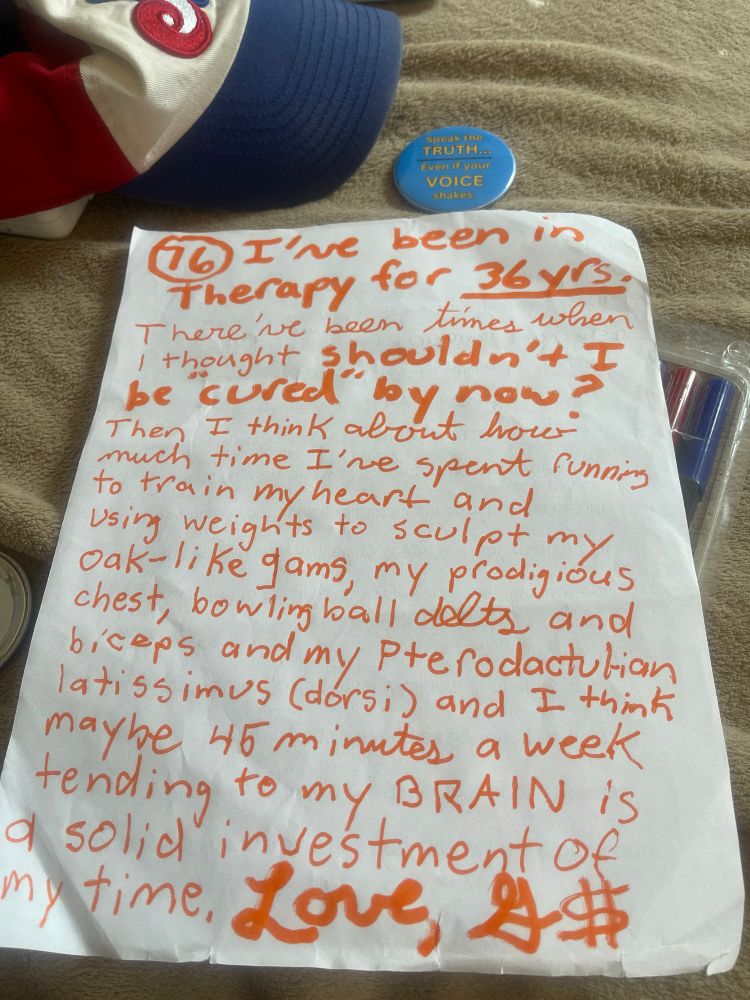 Speak the
TRUTH...
Even if your
VOICE
shakes
76 I've been in
Therapy for 36 yrs.
There've been times when
I thought shouldn't I
be "cured" by now?
Then I think about how
much time I've spent running
to train my heart and
using weights to sculpt my
oak-like gams, my prodigious
chest, bowling ball delts and
biceps and my Pterodactylian
latissimus (dorsi) and I think
maybe 45 minutes a week
tending to my BRAIN is
a solid investment of
my time. Love, G$